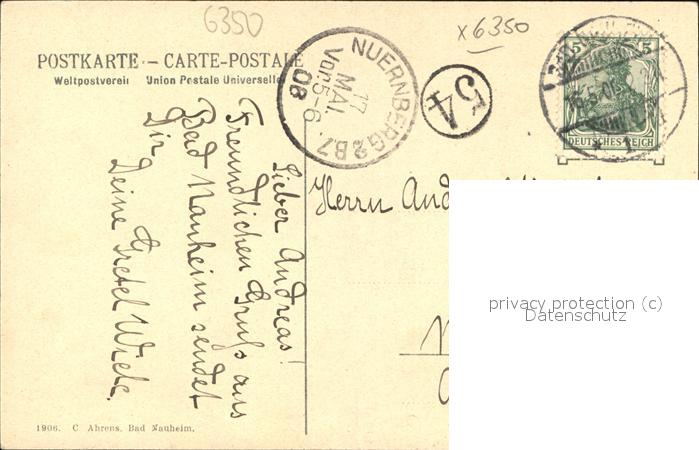 6350
x 6350
POSTKARTE — CARTE-POSTALE
Weltpostverein Union Postale Universelle
NUERNBERG 2 B7.
17
MAI.
Vor. 5-6
08
54
5 5
DEUTSCHES REICH
Lieber Andreas!
Freundlichen Gruß aus
Bad Nauheim sendet
Dir
Deine Gretel
Herrn
privacy protection (c)
Datenschutz
1906. C Ahrens, Bad Nauheim.